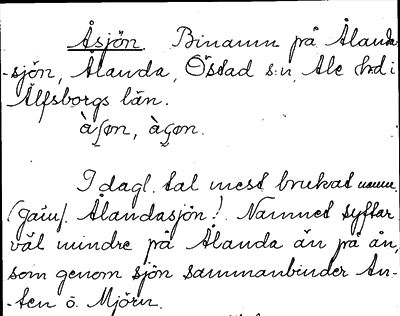 Åsjön. Binamn på Ålanda-
-sjön, Ålanda, Östad s:n, Ale hrd i
Älfsborgs län.
àʃøn, àçøn.
I dagl. tal mest brukat namn.
(jämf. Ålandasjön!). Namnet syftar
väl mindre på Ålanda än på ån,
som genom sjön sammanbinder An-
-ten o. Mjörn.